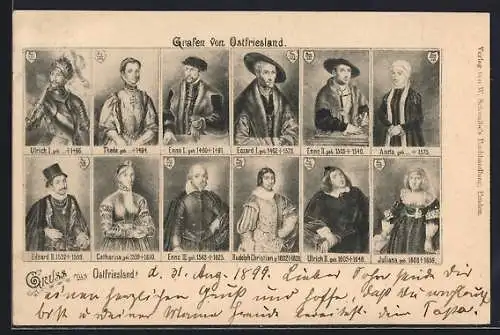 Grafen von Ostfriesland.
Ulrich I. geb. ... †1466.
Theda geb. ... †1494.
Enno I. geb. 1460 †1491.
Edzard I. geb. 1462 †1528.
Enno II. geb. 1505 †1540.
Anna geb. ... †1575.
Edzard II. 1532 †1599.
Catharina geb. 1539 †1610.
Enno III. geb. 1563 †1625.
Rudolph Christian g. 1602 †1628.
Ulrich II. geb. 1605 †1648.
Juliana geb. 1606 †1659.
Gruss aus Ostfriesland! d. 31. Aug. 1899. Lieber sende Dir
einen herzlichen Gruß und hoffe, daß Du
bist u Deiner Mama Freude bereitest. Dein
Verlag von W. Schwalbe's Buchhandlung, Emden.